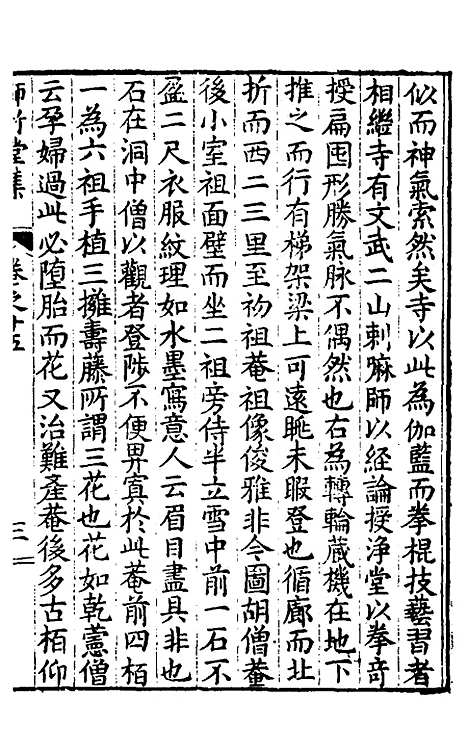 似而神氣索然矣寺以此為伽藍而拳棍技藝習者
相繼寺有文武二山刺麻師以経論授浄堂以拳奇
授扁囤形勝氣脉不偶然也右為轉輪蔵機在地下
推之而行有梯架梁上可遠眺未暇登也循廊而北
折而西二三里至初祖菴祖像俊雅非令圖胡僧菴
後小室祖面壁而坐二祖旁侍半立雪中前一石不
盈二尺衣服紋理如水墨寫意人云眉目盡具非也
石在洞中僧以觀者登陟不便畀寘於此菴前四栢
一為六祖手植三擁壽藤所謂三花也花如乾薏僧
云孕婦過此必墮胎而花又治難產菴後多古栢仰
師竹堂集
卷之十五
三